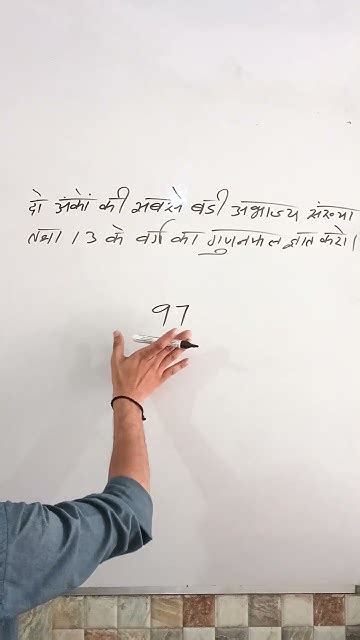 दो अंकों की सबसे बडी अभाज्य संख्या
तथा 13 के वर्ग का गुणनफल ज्ञात करो।
97